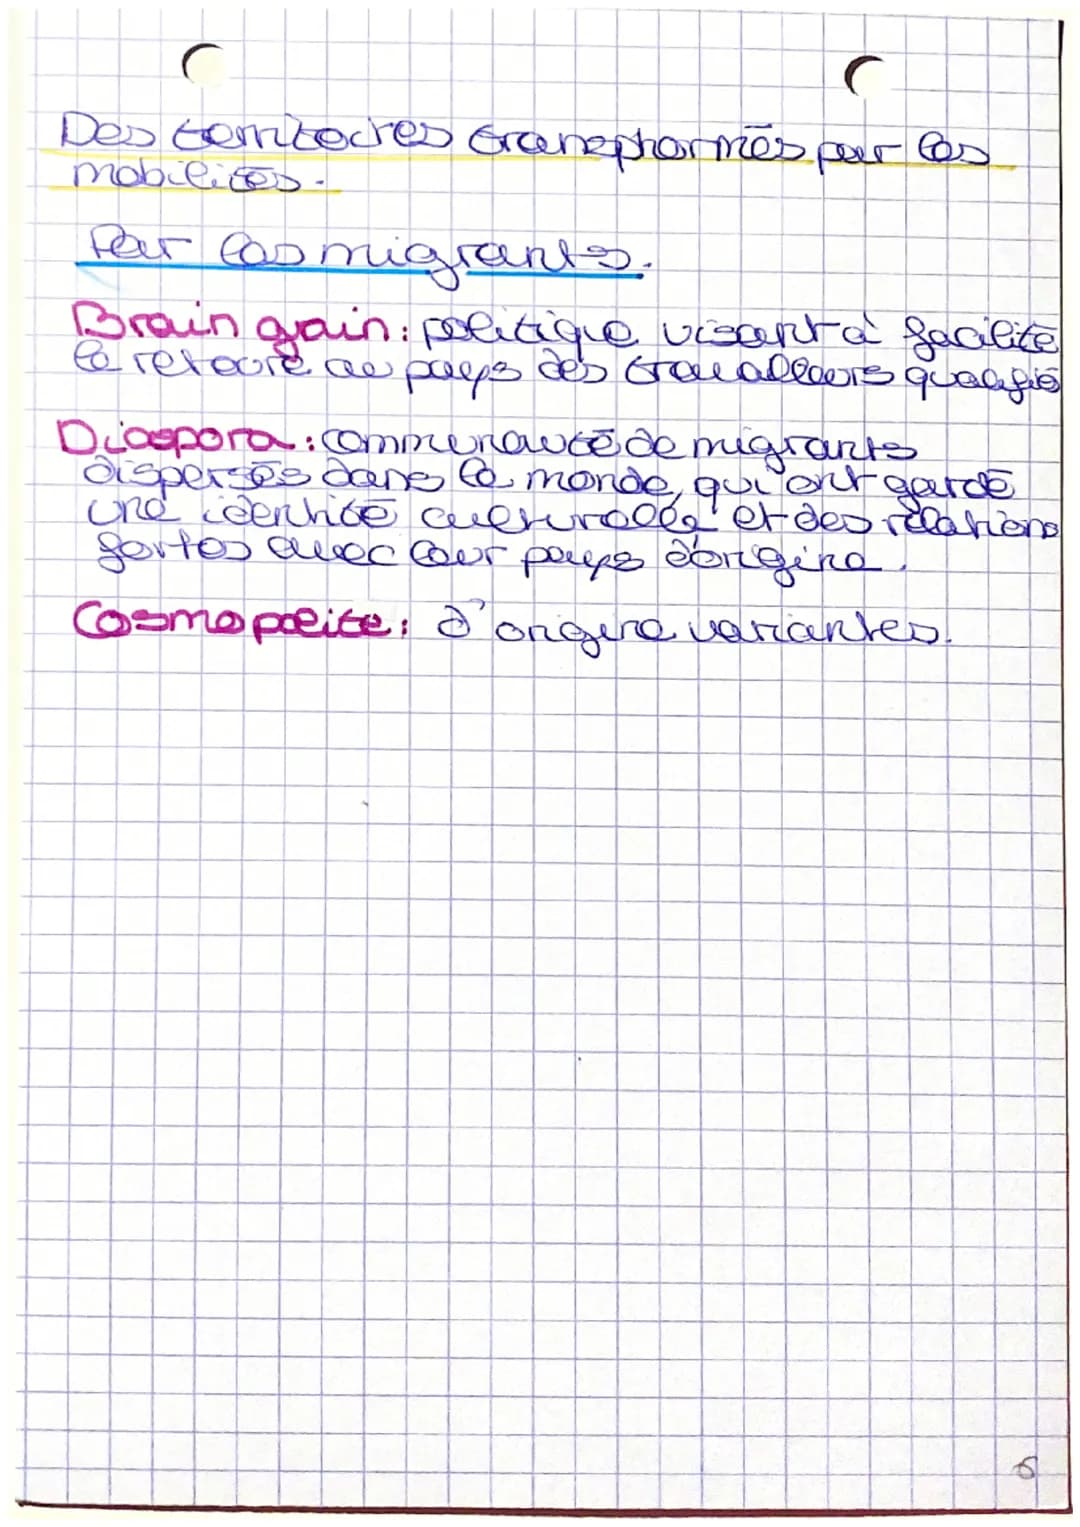 Des territoires transphormés par les
mobilités.
Par les migrants.
Brain grain : politique visant à facilite
le retoure au pays des travailleurs qualifié
Diaspora : communauté de migrants
dispersés dans le monde, qui ont gardé
une identité culturelle et des relations
fortes avec leur pays d'origine.
Cosmopolite : d'origine variantes.
5